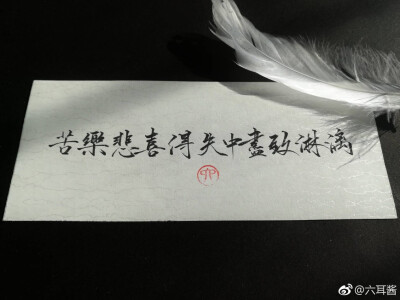 苦樂悲喜得失中盡致淋漓
卯
@六耳酱